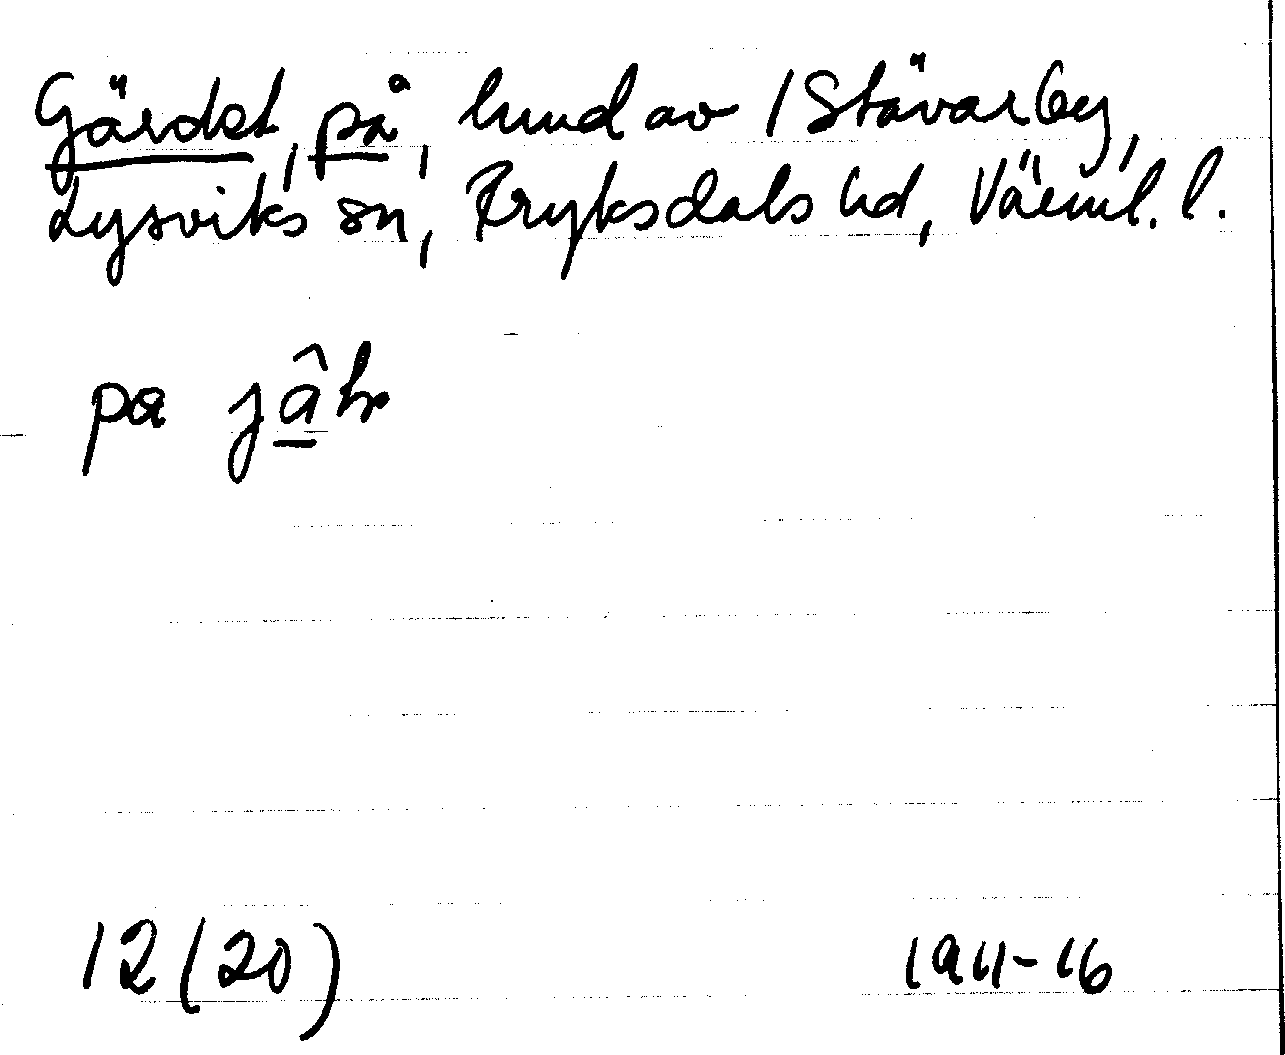 Gärdet, på, hmd av / Stävarby,
Lysviks sn, Fryksdals hd, Värml. l.
pa
12 (20) 1911-16